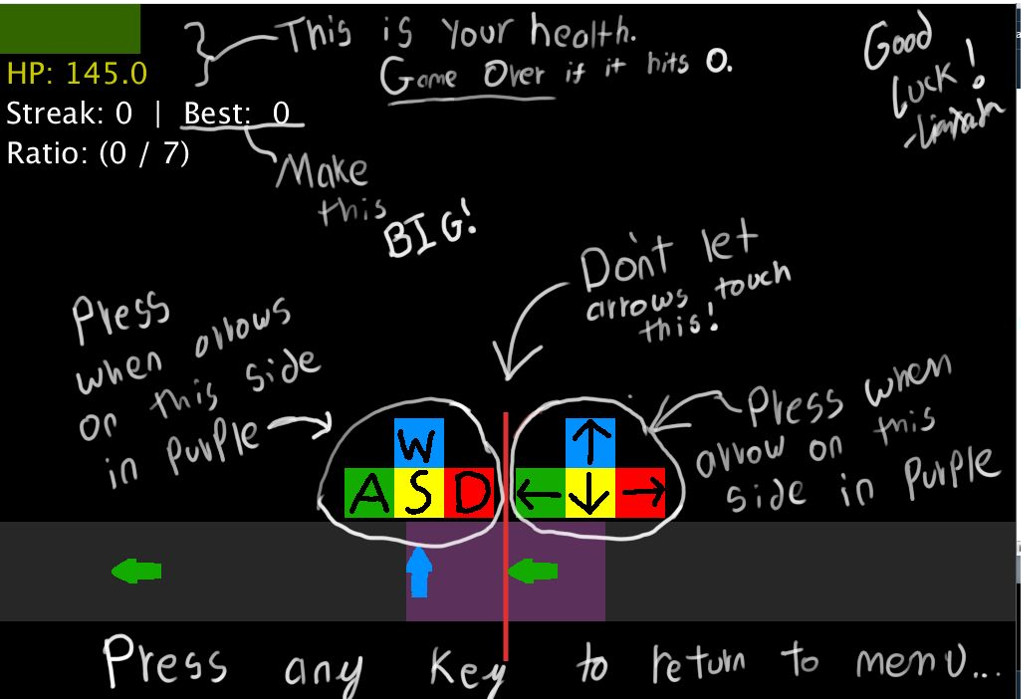 HP: 145.0
Streak: 0 | Best: 0
Ratio: (0 / 7)
This is your health.
Game Over if it hits 0.
Good
Luck!
Make
this
BIG!
Don't let
arrows touch
this!
Press
when arrows
on this side
in purple
Press when
arrow on this
side in purple
W
A S D
↑
← ↓ →
Press any key to return to menu...